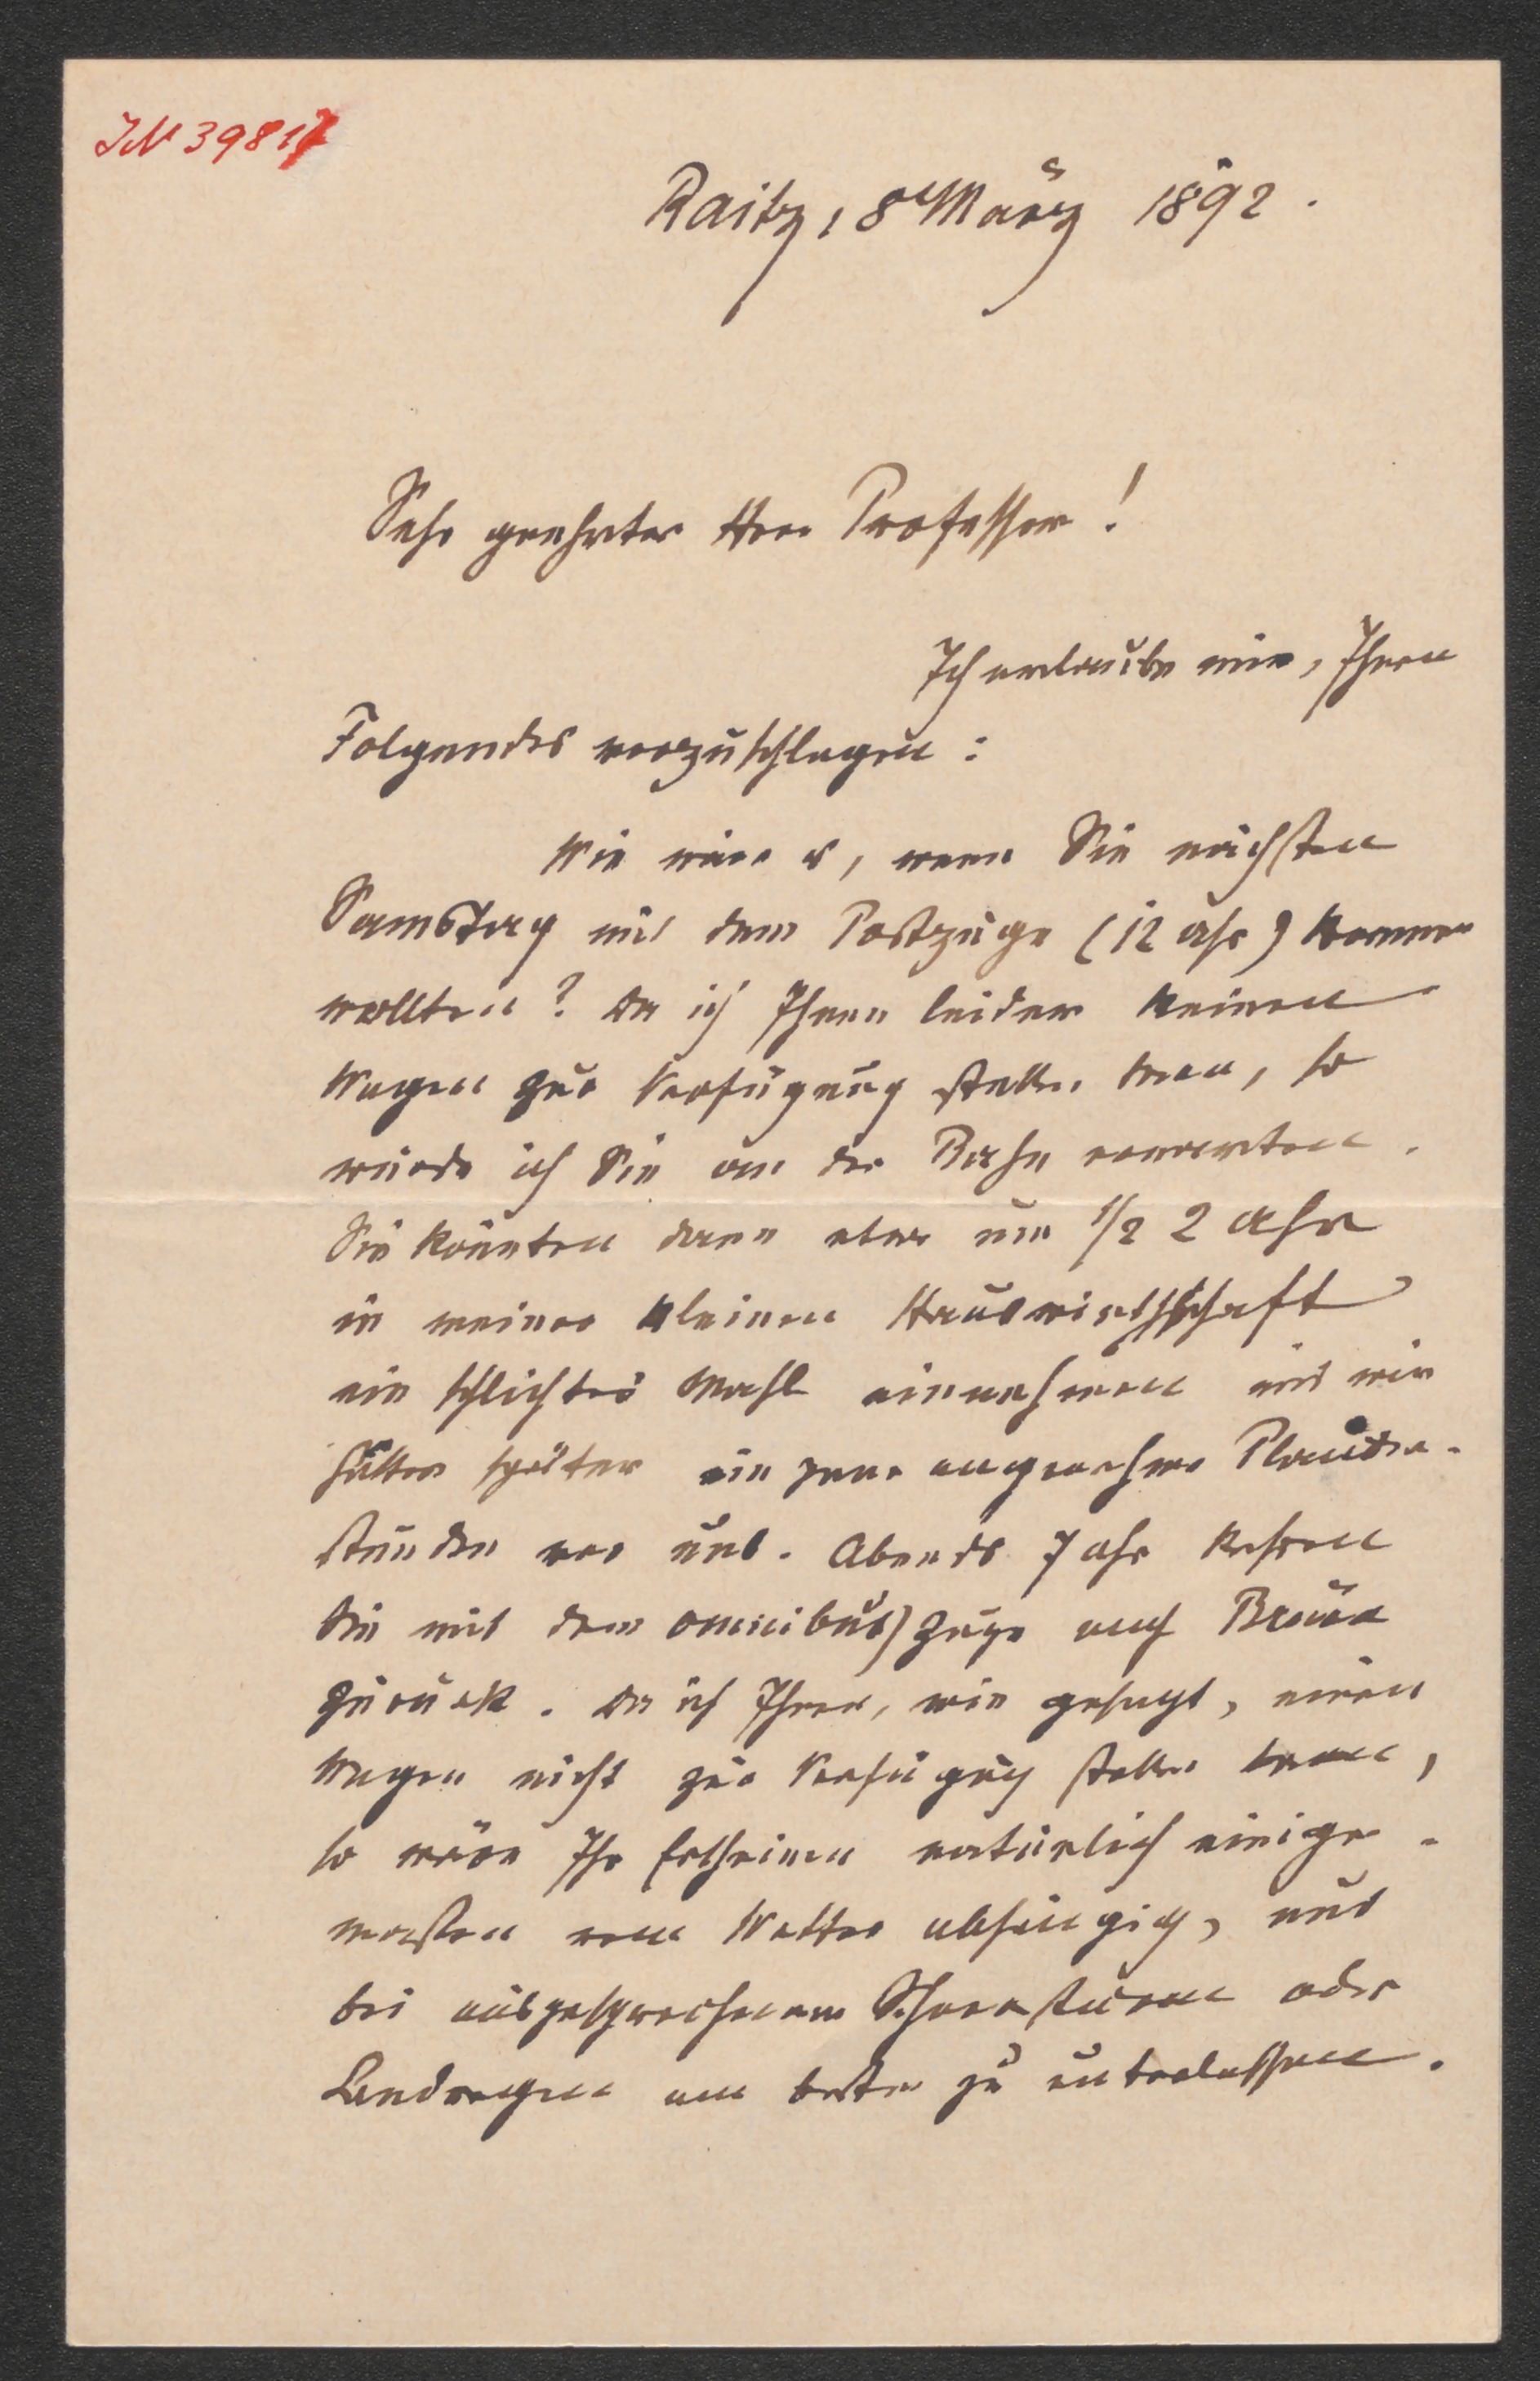 IN 39817
Raitz, 8 März 1892.
Sehr geehrter Herr Professor!
Ich erlaube mir, Ihnen
Folgendes vorzuschlagen:
Wie wäre es, wenn Sie nächsten
Samstag mit dem Postzuge (12 Uhr) kommen
wollten? Da ich Ihnen leider keinen
Wagen zur Verfügung stellen kann, so
würde ich Sie an der Bahn erwarten.
Sie könnten dann etwa um 1/2 2 Uhr
in meiner kleinen Hauswirthschaft
ein schlichtes Mahl einnehmen und wir
hätten später ein paar angenehme Plauder-
stunden vor uns. Abends 7 Uhr kehren
Sie mit dem Omnibuszuge nach Brünn
zurück. Da ich Ihnen, wie gesagt, einen
Wagen nicht zur Verfügung stellen kann,
so wäre Ihr Erscheinen natürlich einiger-
massen vom Wetter abhängig, und
bei ausgesprochenem Schneesturm oder
Landregen am besten zu unterlassen.